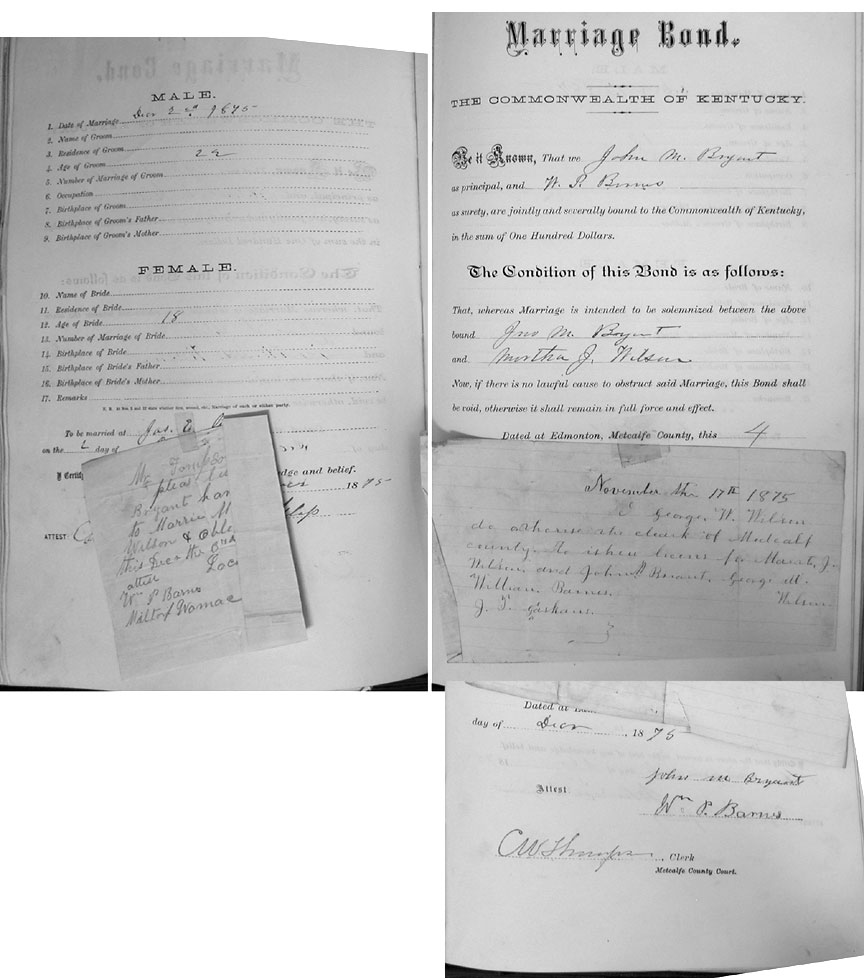 MALE.
1. Date of Marriage Decr 2nd 1875
2. Name of Groom
3. Residence of Groom
4. Age of Groom 22
5. Number of Marriage of Groom
6. Occupation
7. Birthplace of Groom
8. Birthplace of Groom's Father
9. Birthplace of Groom's Mother
FEMALE.
10. Name of Bride
11. Residence of Bride
12. Age of Bride 18
13. Number of Marriage of Bride
14. Birthplace of Bride
15. Birthplace of Bride's Father
16. Birthplace of Bride's Mother
17. Remarks
To be married at Jas. E.
on the 2 day of
I Certify
dge and belief.
1875
ATTEST:
Mr Tompson
pleas
Bryant
to Marrie M
Wilson &
this Dec the
attest
Wm P Barns
Milton Womac
Marriage Bond.
THE COMMONWEALTH OF KENTUCKY.
Be it Known, That we John M. Bryant
as principal, and W. P. Barns
as surety, are jointly and severally bound to the Commonwealth of Kentucky,
in the sum of One Hundred Dollars.
The Condition of this Bond is as follows:
That, whereas Marriage is intended to be solemnized between the above
bound Jno M. Bryant
and Martha J. Wilson
Now, if there is no lawful cause to obstruct said Marriage, this Bond shall
be void, otherwise it shall remain in full force and effect.
Dated at Edmonton, Metcalfe County, this 4
November the 17th 1875
I George. W. Wilson
do athorise the clerk of Medcalf
county to ishew licens for Marit, J.
Wilson and John M Briant. George W.
William Barnes. Wilson
J. T. Gaskans.
Dated at
day of Decr, 1875
John M Bryant
Attest
Wm P. Barns
, Clerk
Metcalfe County Court.